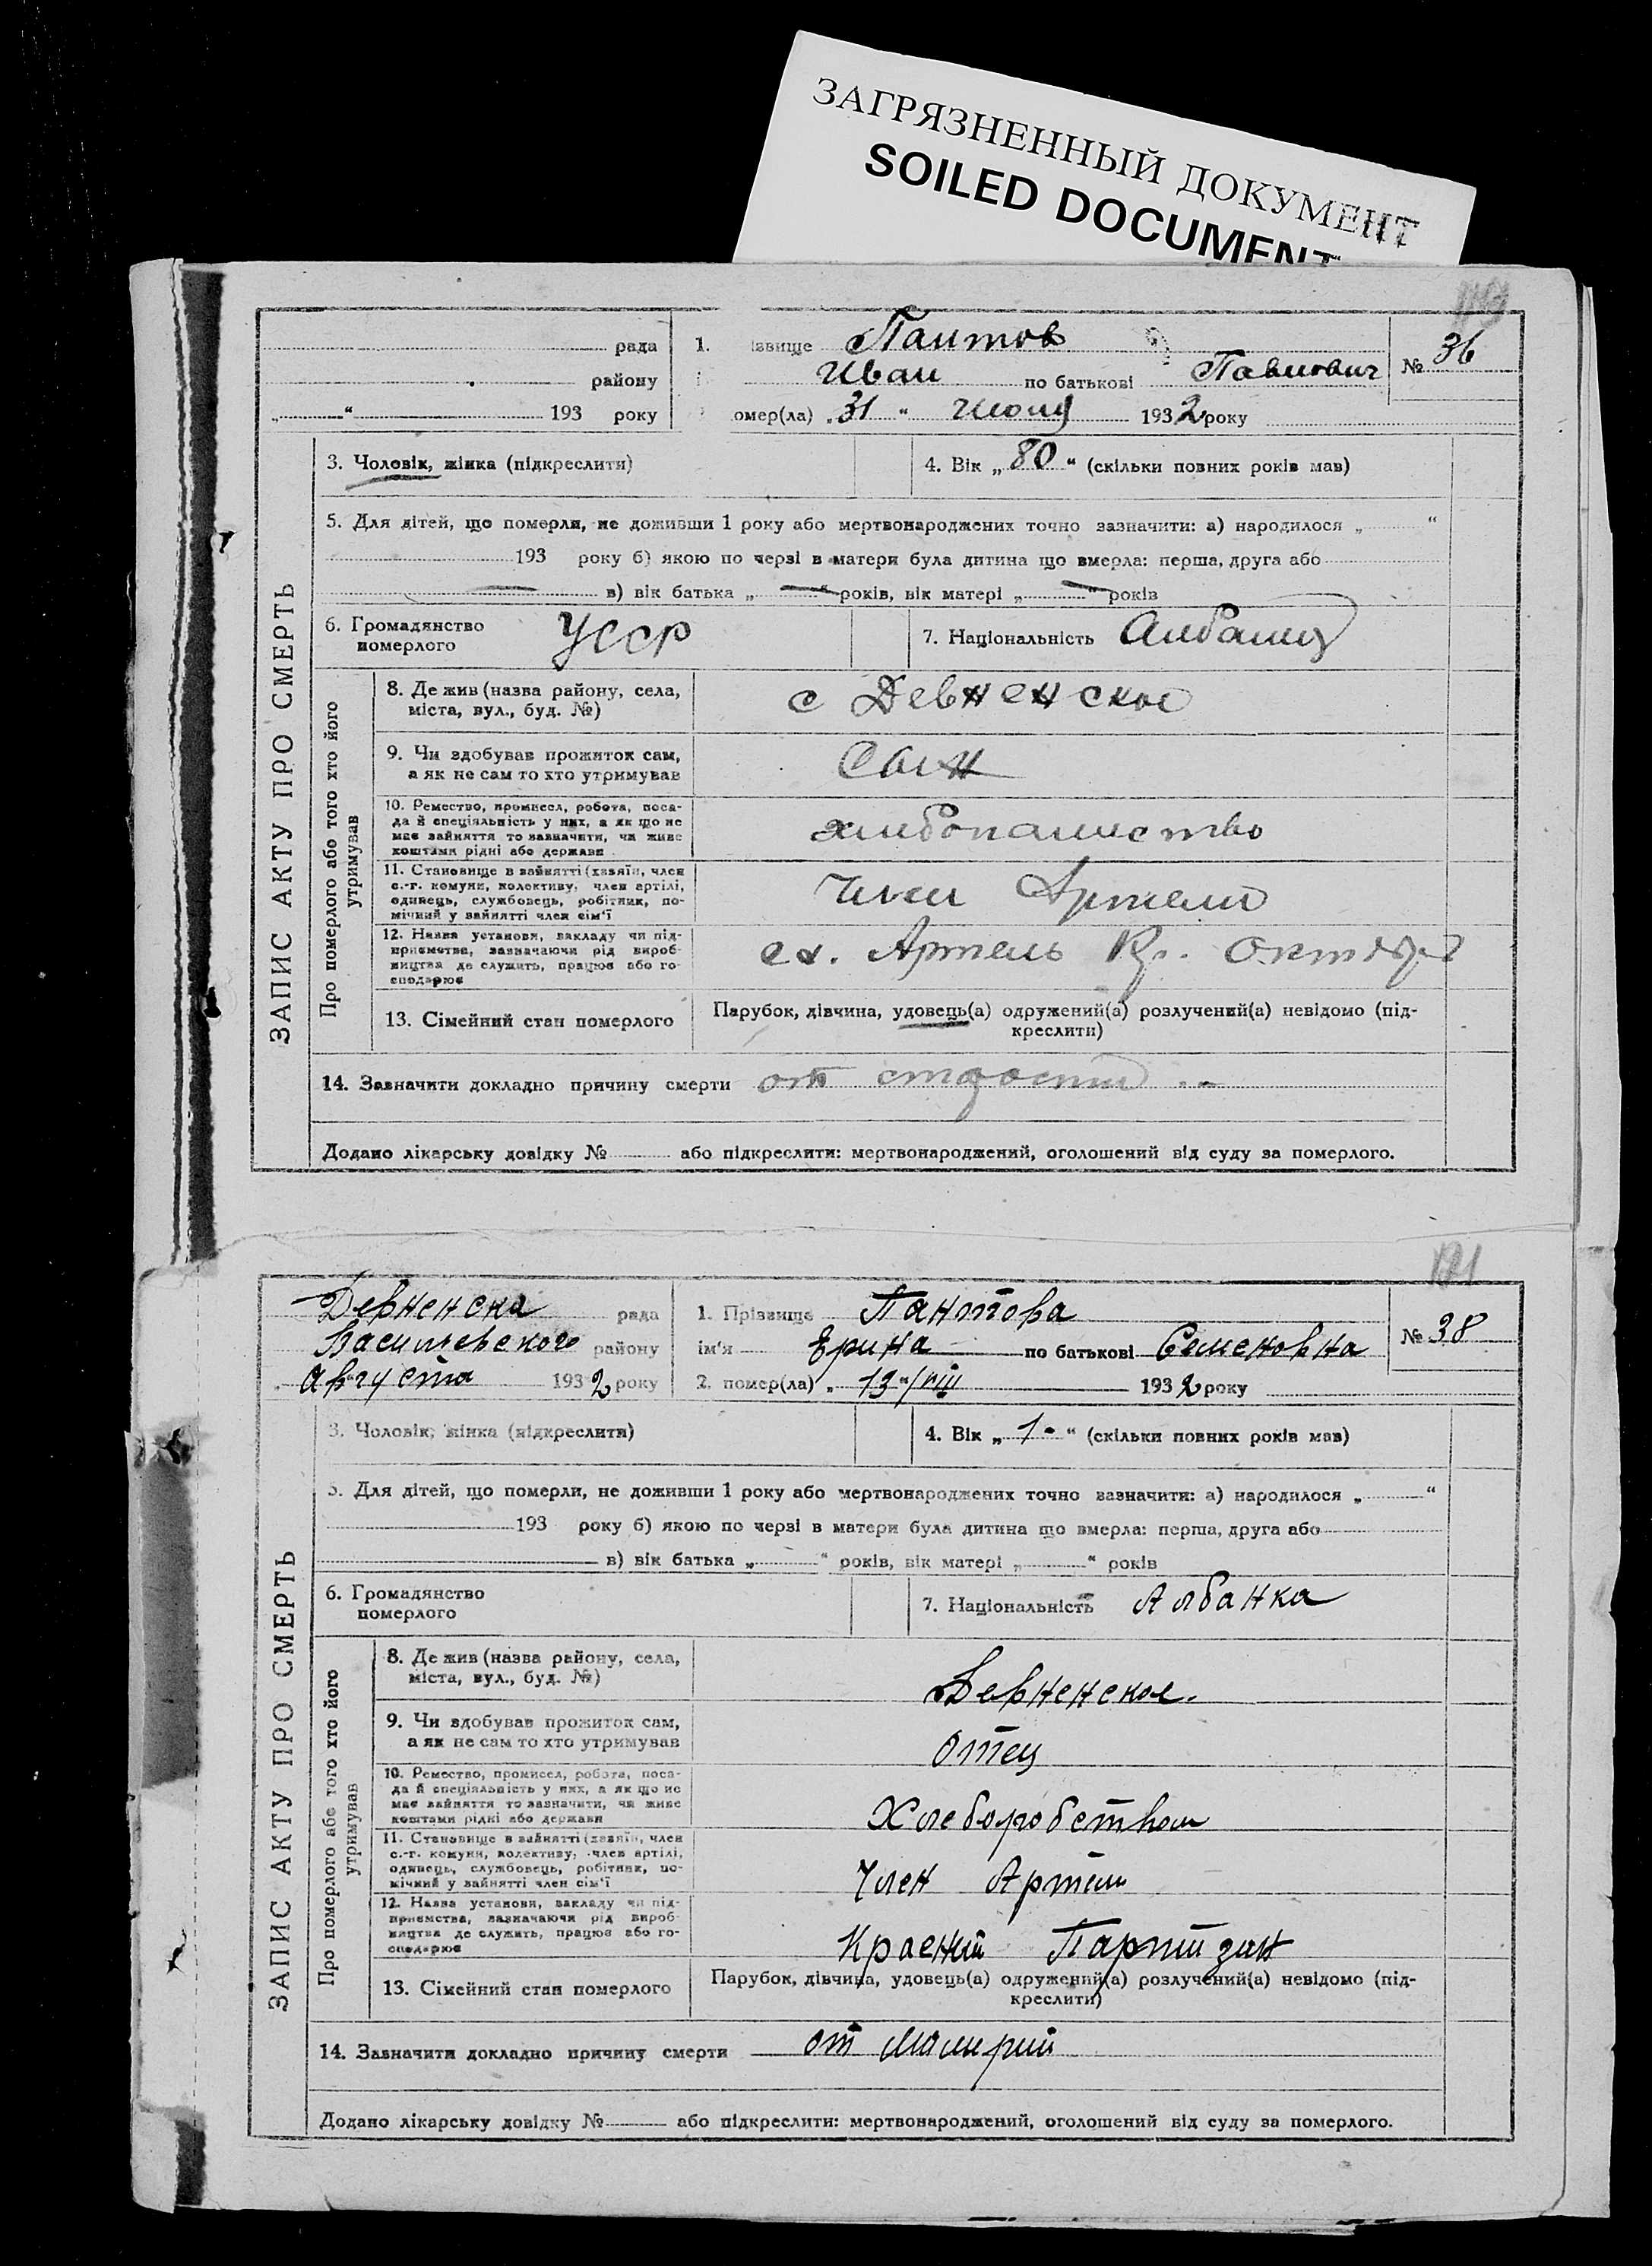 ЗАГРЯЗНЕННЫЙ ДОКУМЕНТ
SOILED DOCUMENT
рада
району
„ “ 193 року
1. ізвище Пантов
Иван по батькові Павлович
омер(ла) „31“ Июля 1932 року
№ 36
3. Чоловік, жінка (підкреслити)
4. Вік „80“ (скільки повних років мав)
5. Для дітей, що померли, не доживши 1 року або мертвонароджених точно зазначити: а) народилося „ “
193 року б) якою по черзі в матери була дитина що вмерла: перша, друга або
в) вік батька „ — “ років, вік матері „ — “ років
6. Громадянство померлого УССР
7. Національність Албанец
ЗАПИС АКТУ ПРО СМЕРТЬ
Про померлого або того хто його утримував
8. Де жив (назва району, села,
міста, вул., буд. №)
с Девненское
9. Чи здобував прожиток сам,
а як не сам то хто утримував
Сын
10. Ремество, промисел, робота, поса-
да й спеціяльність у них, а як що не
має зайняття то зазначити, чи живе
коштами рідні або держави
11. Становище в зайнятті (хазяїн, член
с.-г. комуни, колективу, член артілі,
одинець, службовець, робітник, по-
мічний у зайнятті член сім'ї
Член Артели
12. Назва установи, закладу чи під-
приємства, зазначаючи рід вироб-
ництва де служить, працює або го-
сподарює
сх. Артель Кр. Октябрь
13. Сімейний стан померлого
Парубок, дівчина, удовець(а) одружений(а) розлучений(а) невідомо (під-
креслити)
14. Зазначити докладно причину смерти от старости
Додано лікарську довідку № або підкреслити: мертвонароджений, оголошений від суду за померлого.
Девненска рада
Васильевского району
Августа 1932 року
1. Прізвище Пантова
ім'я Ерина по батькові Семеновна
2. помер(ла) „13“/VIII 1932 року
№ 38
3. Чоловік, жінка (підкреслити)
4. Вік „1“ (скільки повних років мав)
5. Для дітей, що померли, не доживши 1 року або мертвонароджених точно зазначити: а) народилося „ “
193 року б) якою по черзі в матери була дитина що вмерла: перша, друга або
в) вік батька „ “ років, вік матері „ “ років
6. Громадянство померлого
7. Національність Албанка
ЗАПИС АКТУ ПРО СМЕРТЬ
Про померлого або того хто його утримував
8. Де жив (назва району, села,
міста, вул., буд. №)
Девненское.
9. Чи здобував прожиток сам,
а як не сам то хто утримував
Отец
10. Ремество, промисел, робота, поса-
да й спеціяльність у них, а як що не
має зайняття то зазначити, чи живе
коштами рідні або держави
Хлеборобством
11. Становище в зайнятті (хазяїн, член
с.-г. комуни, колективу, член артілі,
одинець, службовець, робітник, по-
мічний у зайнятті член сім'ї
Член Артели
12. Назва установи, закладу чи під-
приємства, зазначаючи рід вироб-
ництва де служить, працює або го-
сподарює
Красний Партизан
13. Сімейний стан померлого
Парубок, дівчина, удовець(а) одружений(а) розлучений(а) невідомо (під-
креслити)
14. Зазначити докладно причину смерти от Малярии
Додано лікарську довідку № або підкреслити: мертвонароджений, оголошений від суду за померлого.